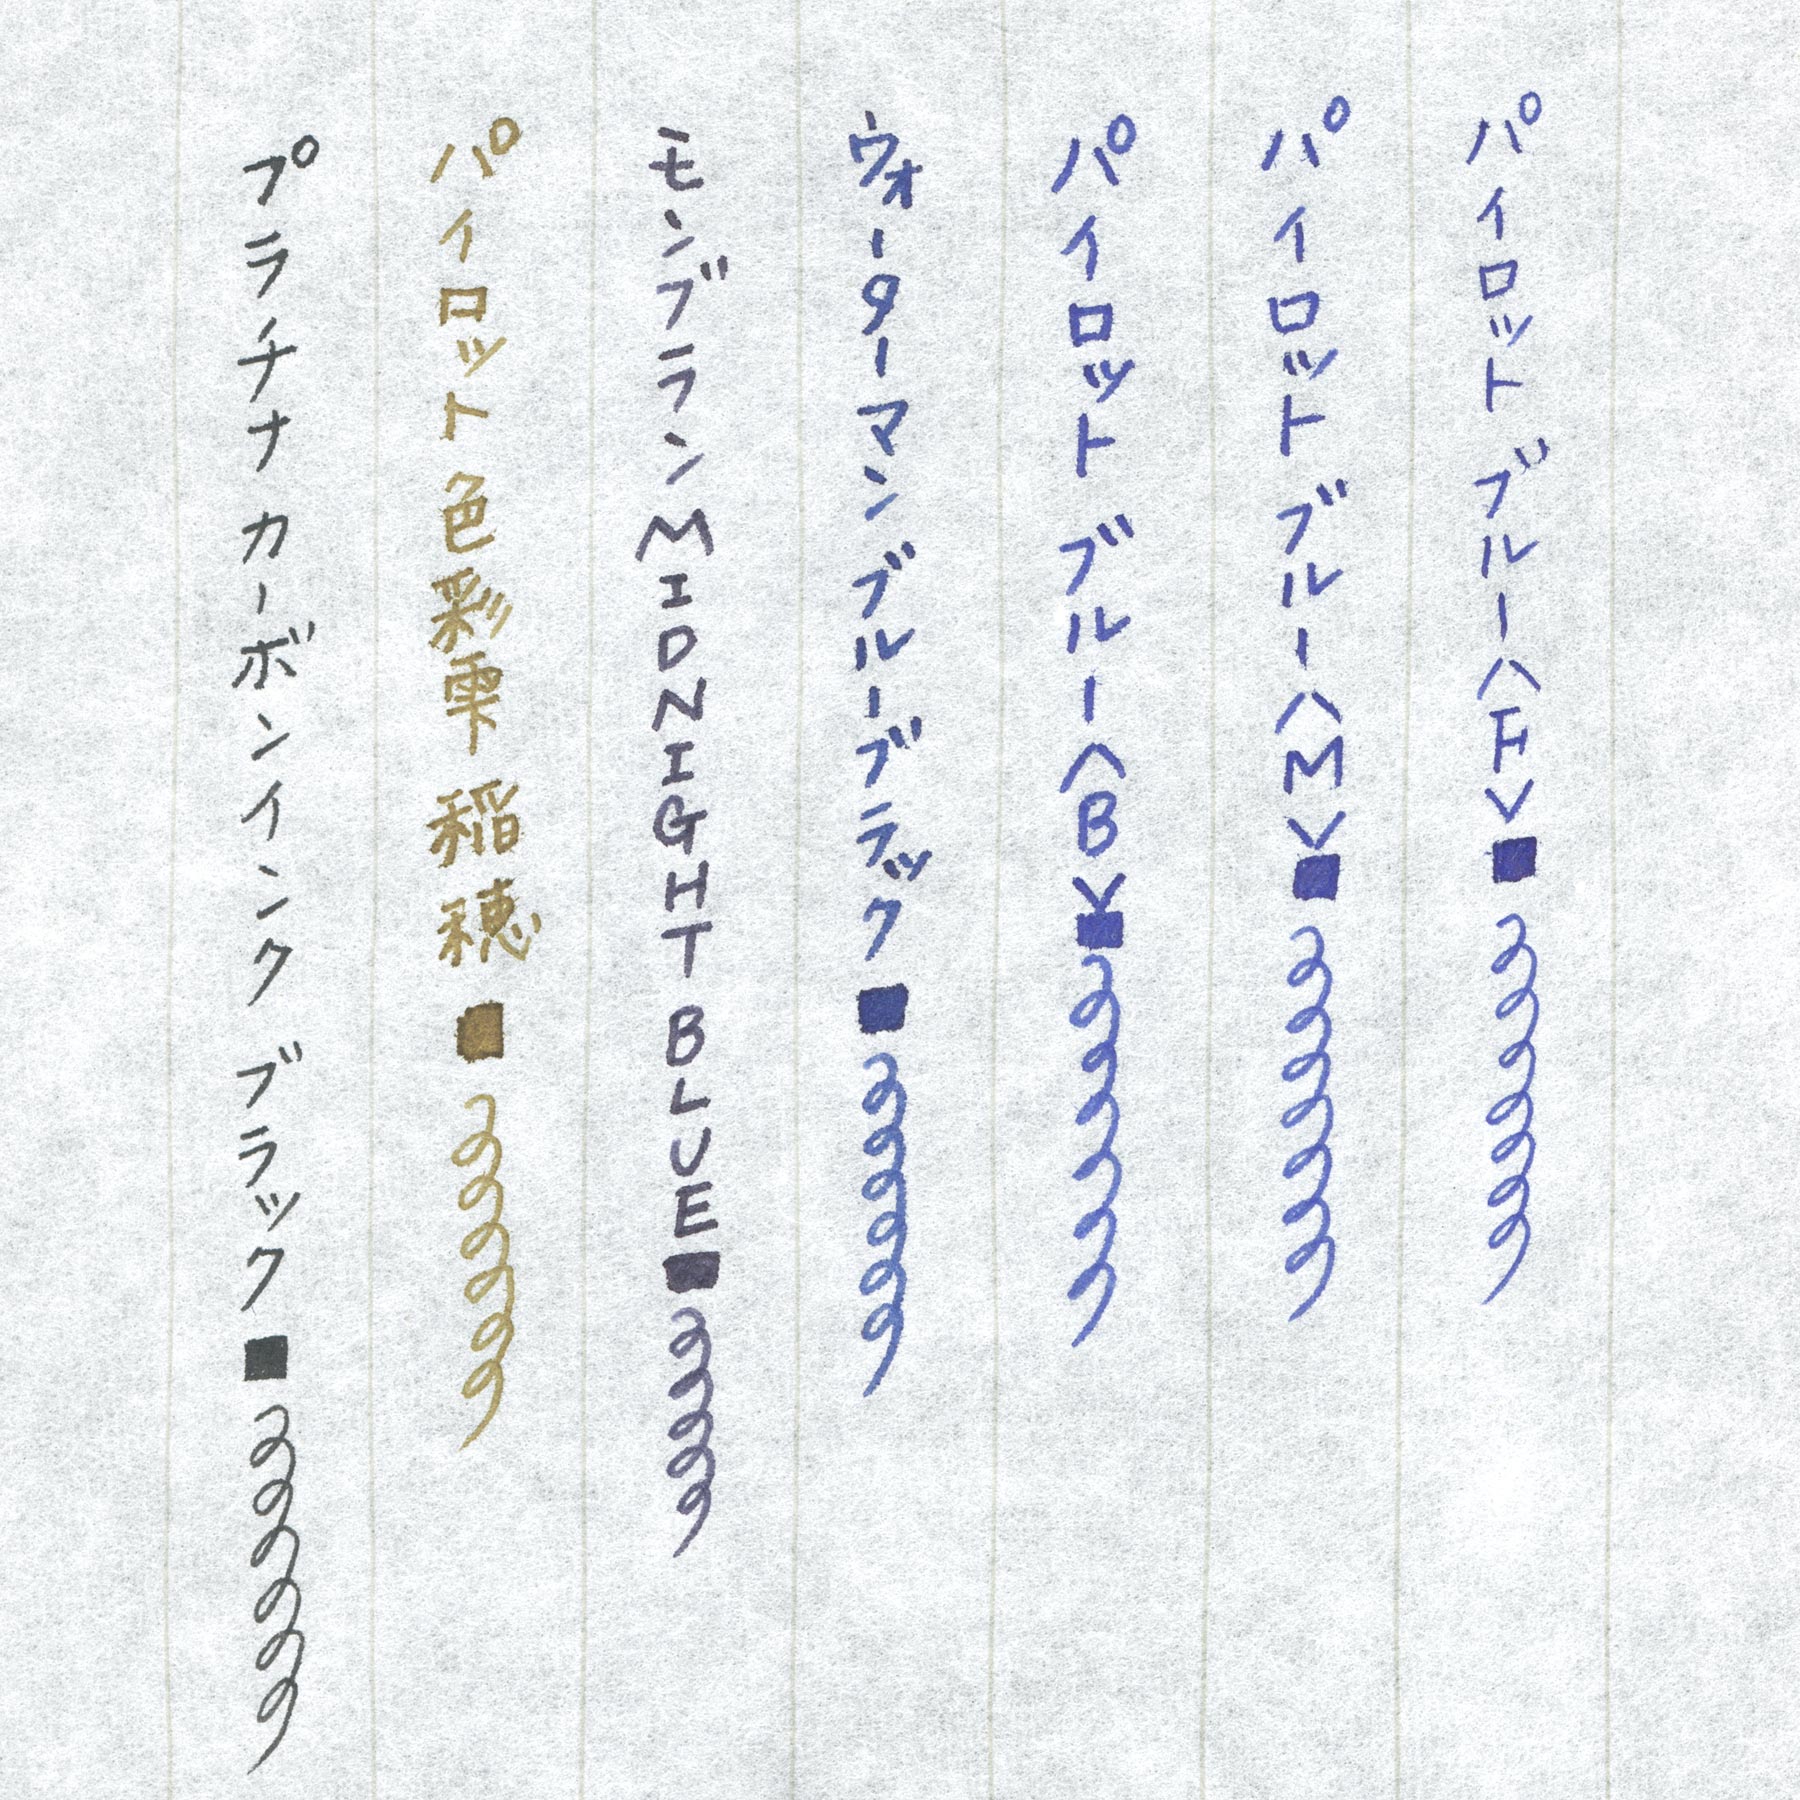 パイロットブルー〈F〉
パイロットブルー〈M〉
パイロット ブルー〈B〉
ウォーターマン ブルーブラック
モンブラン MIDNIGHT BLUE
パイロット 色彩雫 稲穂
プラチナ カーボンインク ブラック